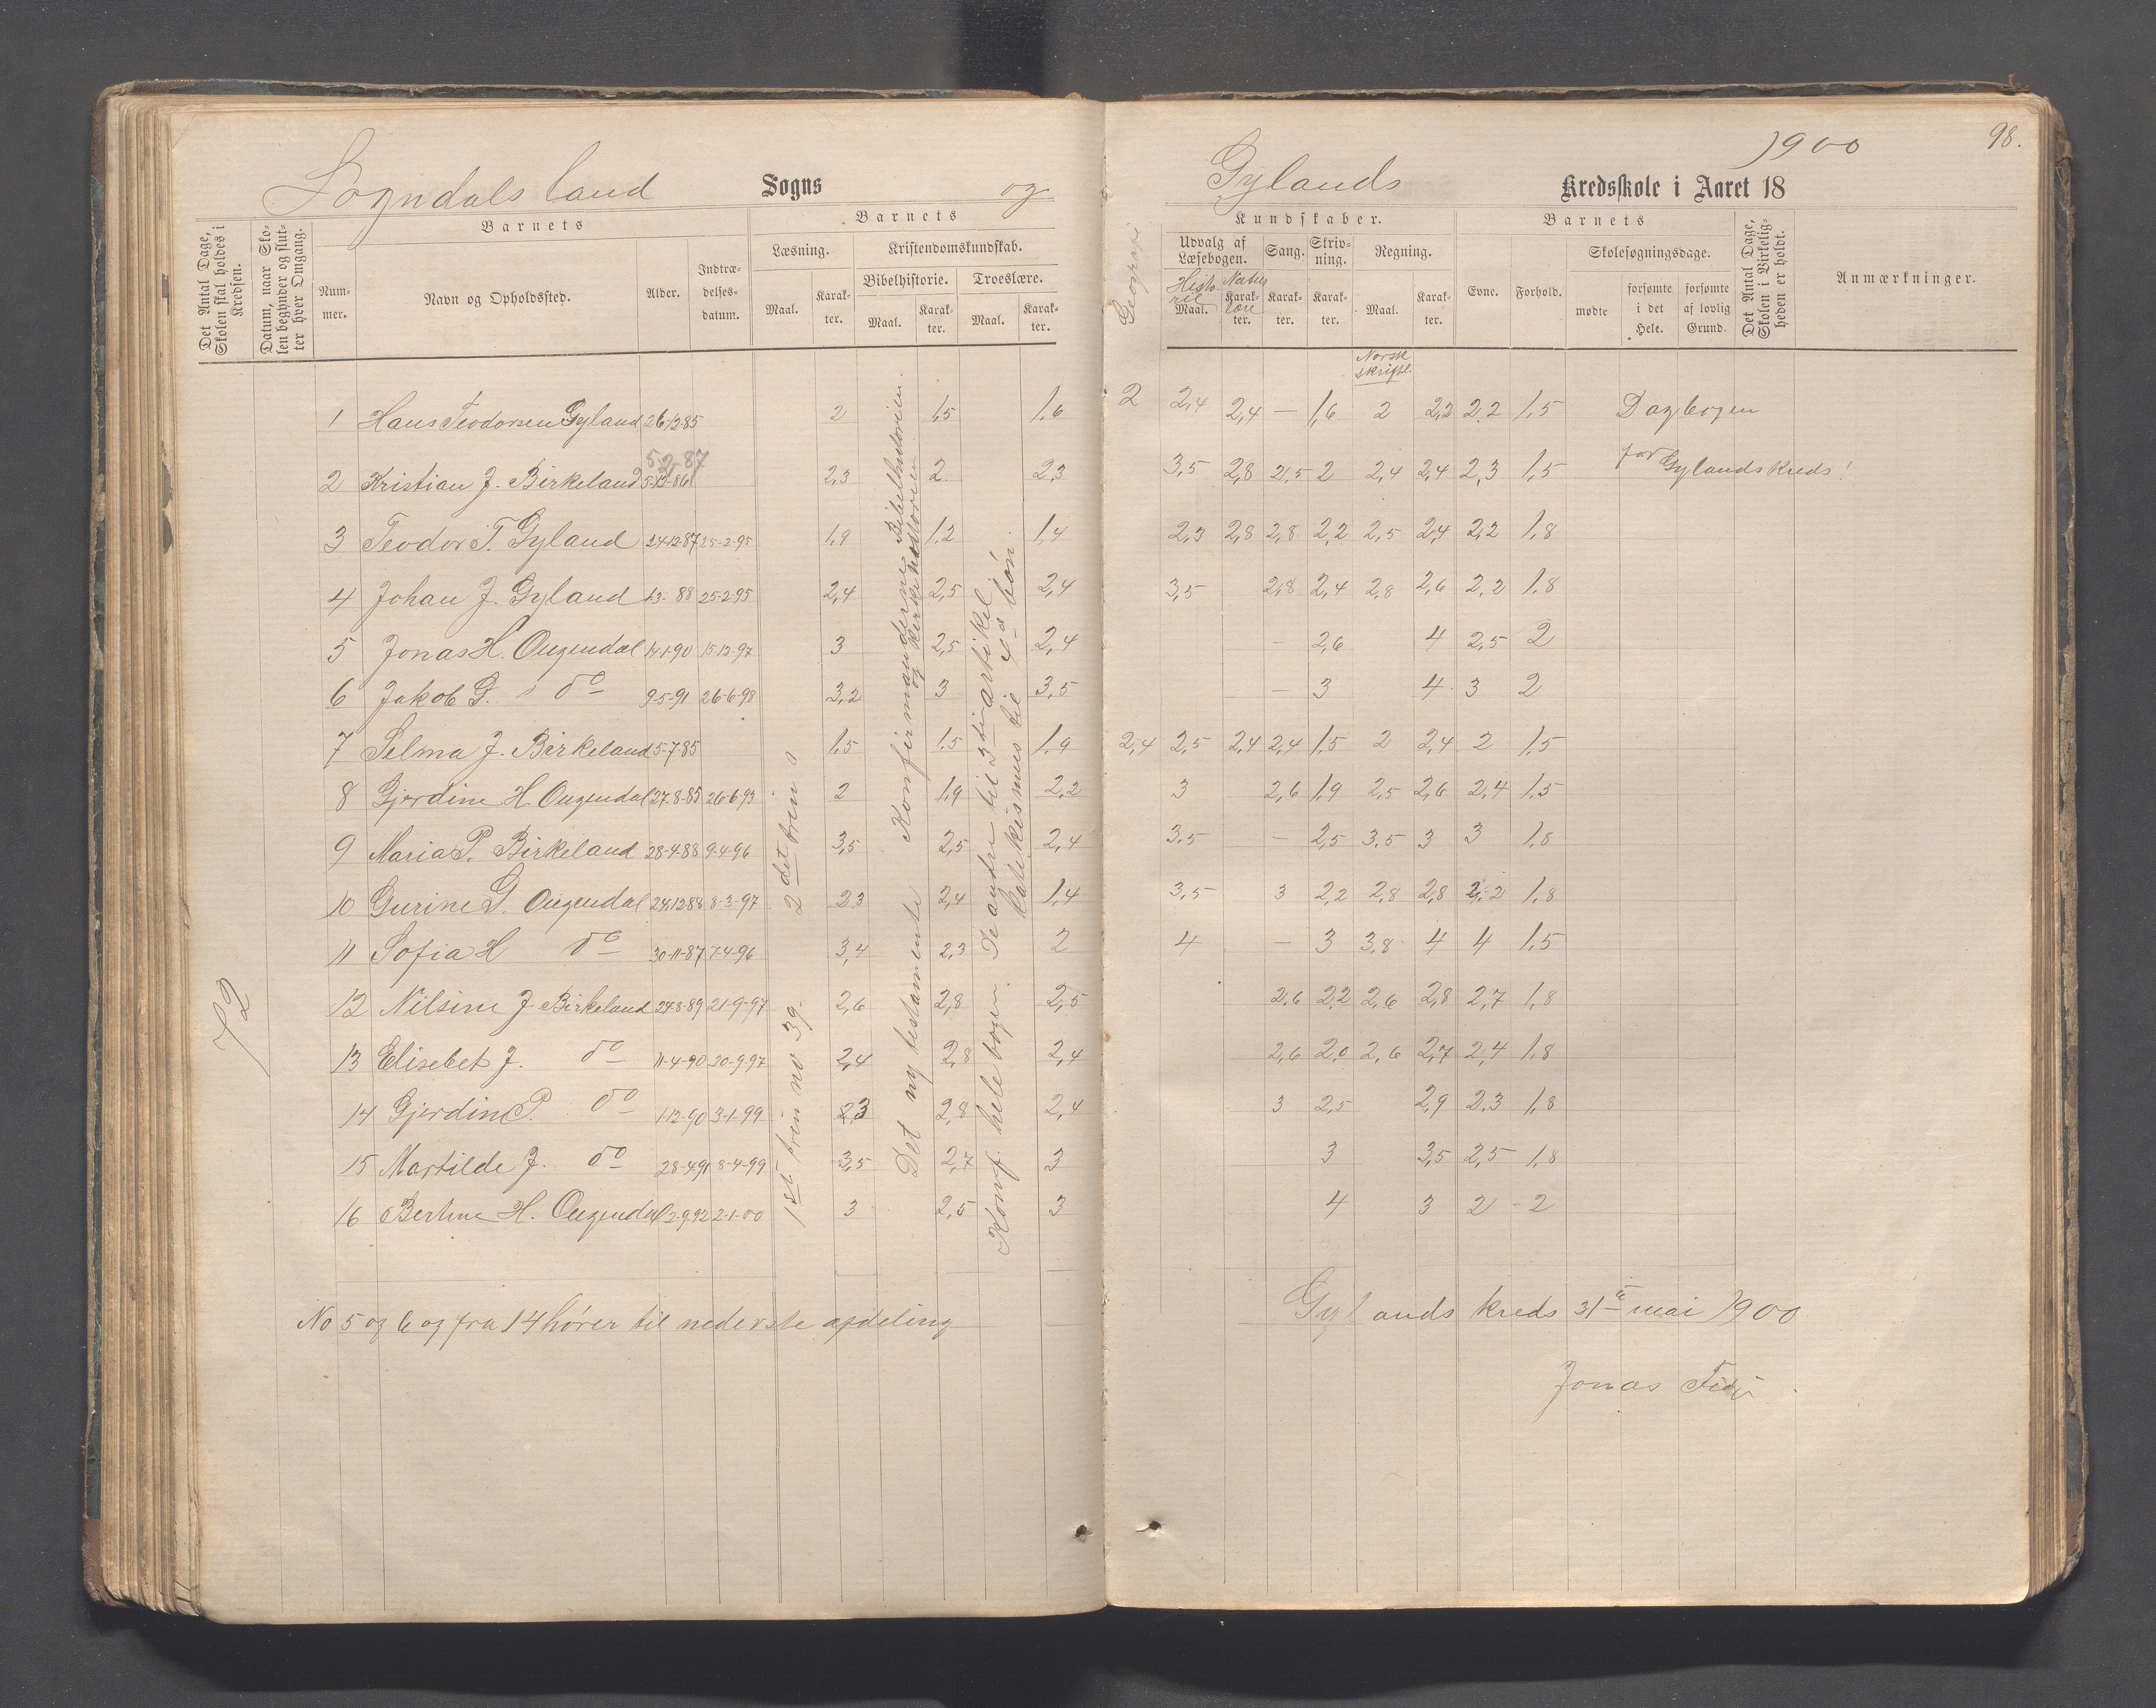 98.
Sogndals land Sogns og Gylands Kredsskole i Aaret 18 1900
Det Antal Dage, Skolen skal holdes i Kredsen.
Datum, naar Skolen begynder og slutter hver Omgang.
Barnets
Nummer.
Navn og Opholdssted.
Alder.
Indtrædelsesdatum.
Barnets
Læsning.
Maal.
Karakter.
Kristendomskundskab.
Bibelhistorie.
Maal.
Karakter.
Troeslære.
Maal.
Karakter.
Kundskaber.
Udvalg af Læsebogen.
Historie
Maal.
Naturlære
Karakter.
Sang.
Karakter.
Skrivning.
Karakter.
Regning.
Maal.
Karakter.
Barnets
Evne.
Forhold.
Skolesøgningsdage.
mødte
forsømte i det Hele.
forsømte af lovlig Grund.
Det Antal Dage, Skolen i Virkeligheden er holdt.
Anmærkninger.
Norsk skriftl.
1 Hans Teodorsen Gyland 26-12-85 2 1,5 1,6 2 2,4 2,4 – 1,6 2 2,2 2,2 1,5 Dagbogen
5-2-87
2 Kristian J. Birkeland 5-12-86 2,3 2 2,3 3,5 2,8 2,5 2 2,4 2,4 2,3 1,5 for Gylands kreds!
3 Teodor T. Gyland 24-12-87 25-2-95 1,9 1,2 1,4 2,3 2,8 2,8 2,2 2,5 2,4 2,2 1,8
4 Johan J. Gyland 1-3-88 25-2-95 2,4 2,5 2,4 3,5 2,8 2,4 2,8 2,6 2,2 1,8
5 Jonas H. Ougendal 14-1-90 15-12-97 3 2,5 2,4 – 2,6 4 2,5 2
6 Jakob G. do 9-5-91 26-6-98 3,2 3 3,5 – 3 4 3 2
7 Selma J. Birkeland 5-7-85 1,5 1,5 1,9 2,4 2,5 2,4 2,4 1,5 2 2,4 2 1,5
8 Gjerdine H. Ougendal 27-8-85 26-6-93 2 1,9 2,2 3 2,6 1,9 2,5 2,6 2,4 1,5
9 Maria P. Birkeland 28-4-88 9-4-96 3,5 2,5 2,4 3,5 – 2,5 3,5 3 3 1,8
10 Gurine G. Ougendal 24-12-88 8-3-97 2,3 2,4 1,4 3,5 3 2,2 2,8 2,8 2,2 1,8
11 Sofia H do 30-11-87 7-4-96 3,4 2,3 2 4 – 3 3,8 4 4 1,5
12 Nilsine J. Birkeland 24-8-89 21-9-97 2,6 2,8 2,5 2,6 2,2 2,6 2,8 2,7 1,8
13 Elisebet J. do 11-4-90 30-9-97 2,4 2,8 2,4 2,6 2,0 2,6 2,7 2,4 1,8
14 Gjerdine P. do 1-12-90 3-1-99 2,3 2,8 2,4 3 2,5 2,9 2,3 1,8
15 Martilde J. do 28-4-91 8-4-99 3,5 2,7 3 3 3,5 2,5 1,8
16 Bertine H. Ougendal 2-9-92 2-1-00 3 2,5 3 4 3 2 - 2
72
1st trin no 39. 2det trin
Det ny testamente Konfirmanderne Bibelhistorien og kirkehistorien
Konf. hele bogen. De andre til 3die artikel katekismus til 4de bøn.
No 5 og 6 og fra 14 hører til nederste afdeling
Gylands kreds 31te mai 1900
Jonas